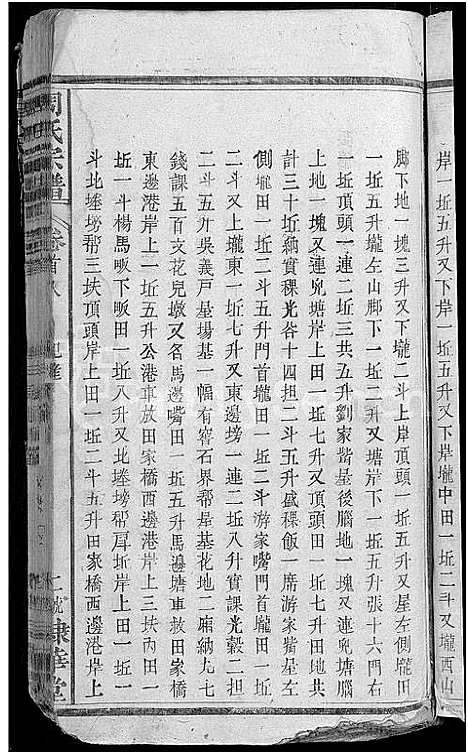 岸一坵五升又下岸一坵五升又下垅壠中田一坵二斗又壠西山
脚下地一塊三升又下壠二斗上岸頂頭一坵五升又屋左側壠田
一坵五升壠左山脚下一坵二升又塘岸下一坵五升張十六門右
山頂頭一連二坵三共五升劉家嘴屋後腦地一塊又連兇塘腦
上地一塊又連兇塘岸上田一坵七升又下岸一坵七升田地共
計三十坵納實稞光谷十四担二斗五升盛稞飯一席游家嘴屋左
側壠田一坵二斗五升門首壠田一坵二斗游家嘴門首壠田一坵
二斗又上壠東一坵七升又東邊塝一連二坵八升實課光穀二担
二斗五升吳義戶屋場基一幅有窰石界帮屋基花地二廂納九七
錢課五百文花兒墩又名馬邊嘴田一坵五升馬邊塘車救田家橋
東邊港岸上一坵五升公港車放田家橋西邊港岸上三坵內田一
坵一斗楊馬畈下畈田一坵八升又北塝帮坵岸上田一坵
斗北塝帮三坵頂頭岸上田一坵二斗五升田家橋西邊港岸上
周氏宗譜
卷首
棣華堂